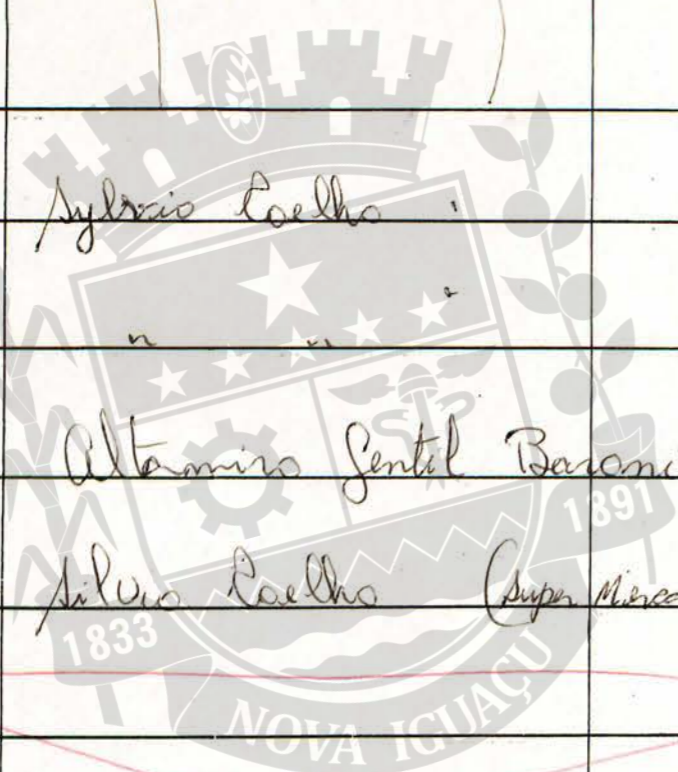 Sylvio Coelho
" "
Altamiro Gentil Baroni
Silvio Coelho (Super Merca
1891
1833
NOVA IGUAÇU